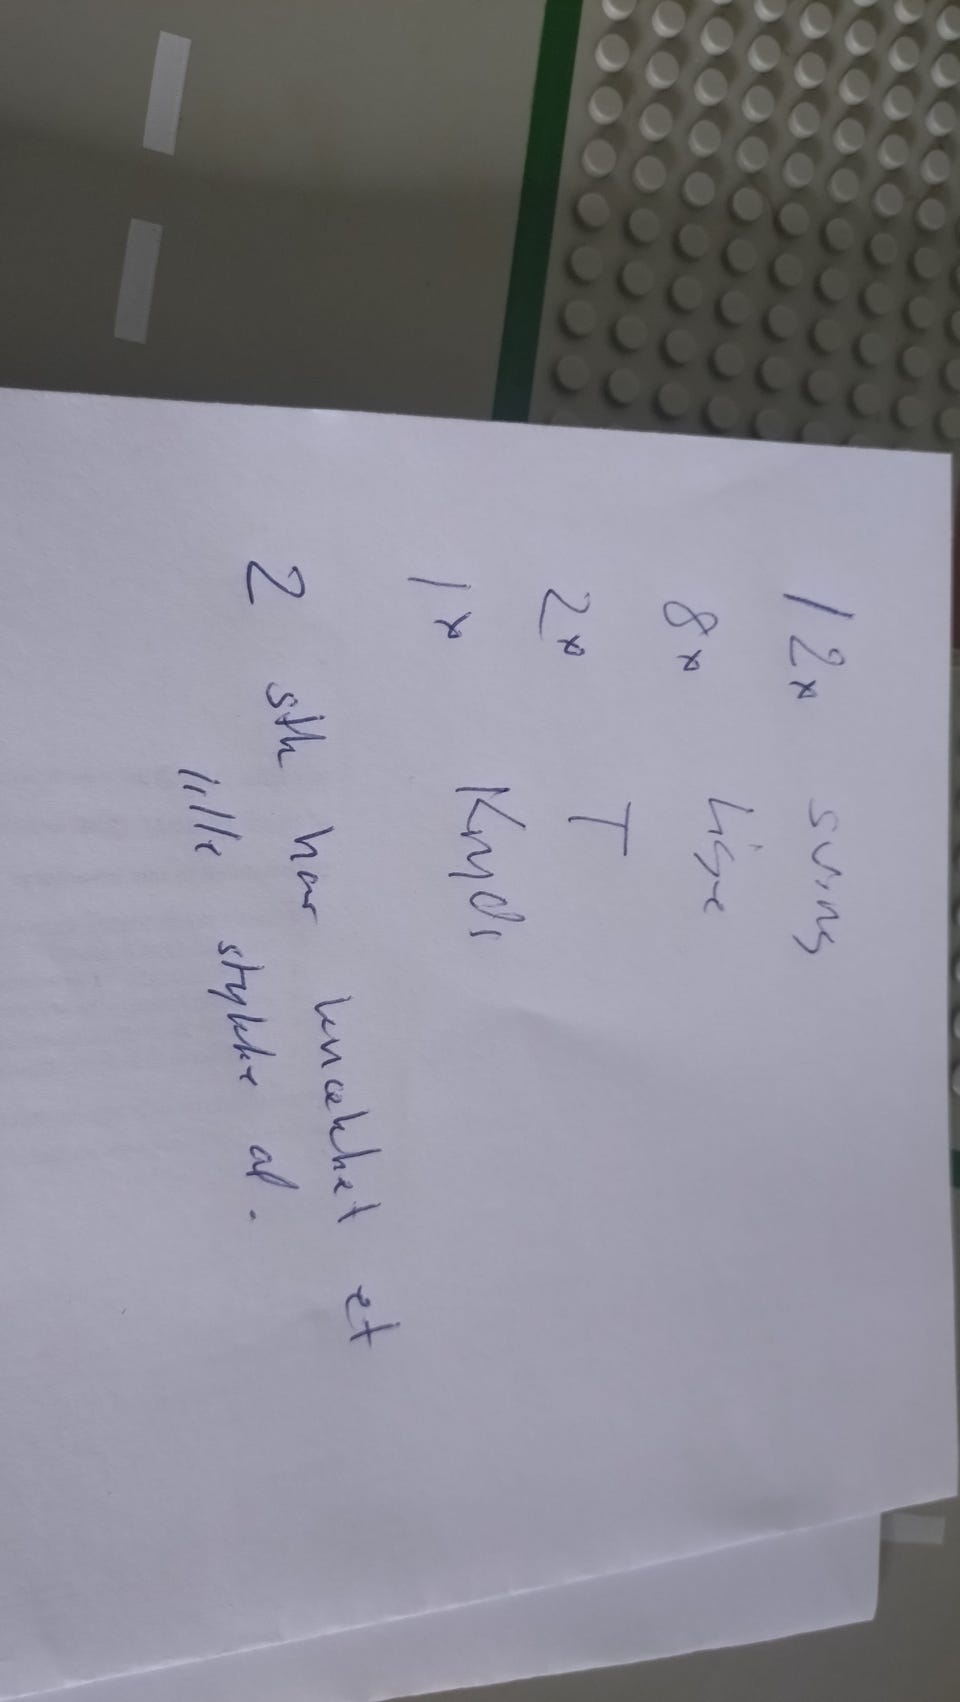 12x sving
8x lige
2x T
1x Kryds
2 stk har knækket et
lille stykke af.